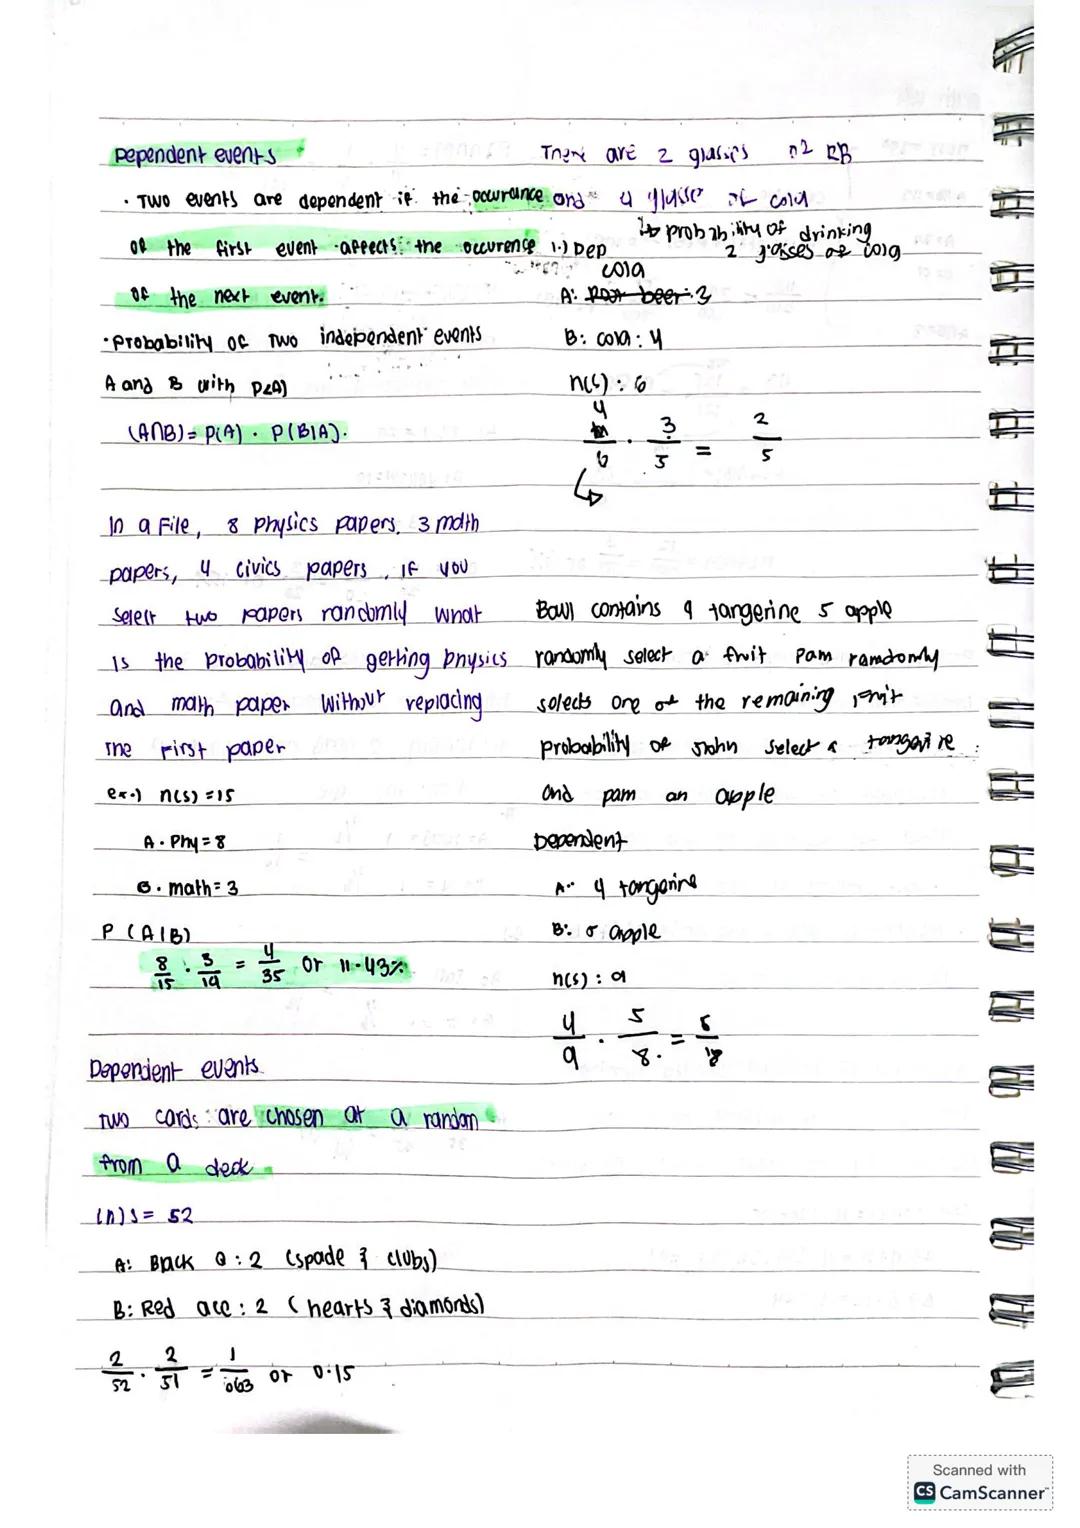 Dependent events
· Two events are dependent if the occurance
of the first event affects the occurence
of the next event.
· Probability of Two independent events
A and B with P(A)
(A∩B) = P(A) · P(B|A).
In a File, 8 Physics papers, 3 math
papers, 4 civics papers, IF you
select two papers randomly what
is the probability of getting physics
and math paper without replacing
The First paper
ex.) n(s) = 15
A · Phy = 8
B · math = 3
P (A|B)
8/15 · 3/14 = 4/35 or 11.43%
Dependent events.
Two cards are chosen at a random
from a deck
(n)s = 52
A: Black Q : 2 (spade & clubs)
B: Red ace : 2 (hearts & diamonds)
2/52 · 2/51 = 1/663 or 0.15
There are 2 glasses of RB
and 4 glasses of cola
↳ probability of drinking
2 glasses of cola
1.) Dep
cola
A: Root beer: 3
B: cola : 4
n(s) : 6
4/6 · 3/5 = 2/5
Bowl contains 4 tangerine 5 apple
randomly select a fruit Pam ramdomly
selects one of the remaining fruit
probability of John select a tangerine
and pam an apple
Dependent
A: 4 tangerine
B: 5 apple
n(s) : 9
4/9 · 5/8 = 5/18
Scanned with
CS CamScanner